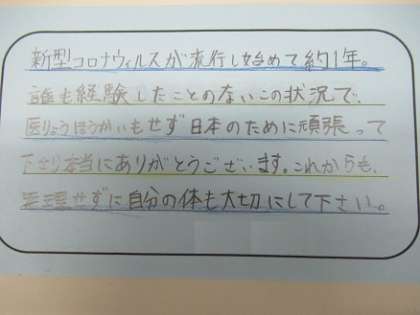 新型コロナウィルスが流行し始めて約1年。
誰も経験したことのないこの状況で、
医りょうほうかいもせず日本のために頑張って
下さり本当にありがとうございます。これからも、
無理せずに自分の体も大切にして下さい。